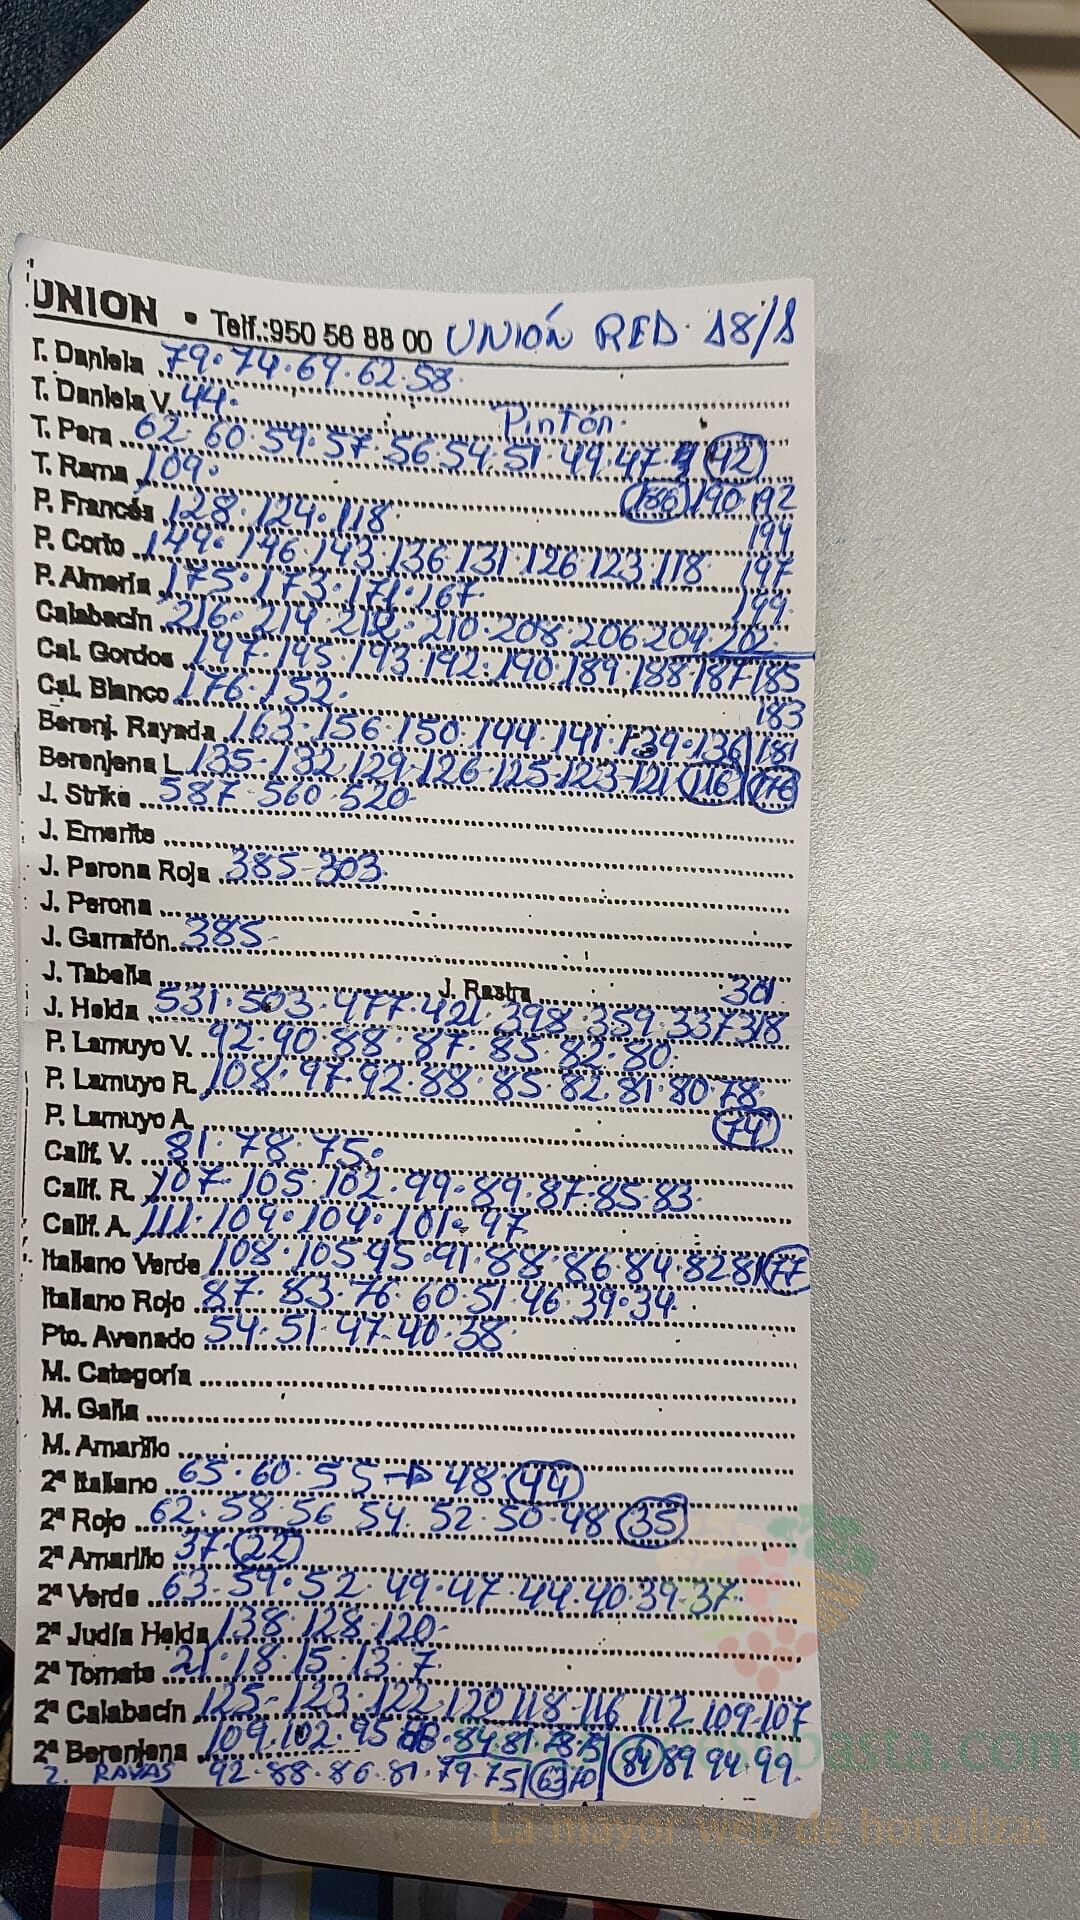 UNION • Telf.:950 56 88 00 UNIÓN RED. 18/1
T. Daniela 79.74.69.62.58.
T. Daniela V. 44.
Pintón.
T. Pera 62.60.59.57.56.54.51.49.47. (42)
T. Rama 109.
(186) 190.192
P. Francés 128.124.118.
194
P. Corto 149.146.143.136.131.126.123.118. 197
P. Almería 175.173.171.167.
199.
Calabacín 216.214.212.210.208.206.204.202
Cal. Gordos 197.195.193.192.190.189.188.187.185
Cal. Blanco 176.152.
183
Berenj. Rayada 163.156.150.144.141.139.136 | 181
Berenjena L. 135-132.129-126.125.123-121 (116) (176)
J. Strike 587-560-520.
J. Emerite
J. Perona Roja 385-303.
J. Perona
J. Garrafón 385-
J. Tabella J. Rastra 301
J. Helda 531.503.477.421.398.359.337.318
P. Lamuyo V. 92.90.88.87.85.82.80.
P. Lamuyo R. 108.97.92.88.85.82.81.80.78
P. Lamuyo A. (74)
Calif. V. 81.78.75.
Calif. R. 107.105.102.99.89.87.85.83.
Calif. A. 111.109.104.101.97
Italiano Verde 108.105.95.91.88.86.84.82.81 (77)
Italiano Rojo 87.83.76.60.51.46.39.34.
Pto. Avenado 54.51.47.40.38.
M. Categoría
M. Galia
M. Amarillo
2ª Italiano 65.60.55→48.(44)
2ª Rojo 62.58.56 54.52.50.48 (35)
2ª Amarillo 37.(22)
2ª Verde 63.59.52.49.47.44.40.39.37.
2ª Judía Helda 138.128.120.
2ª Tomate 21.18.15.13.7.
2ª Calabacín 125-123.122.120.118-116 112.109.107
2ª Berenjena 109.102.95 88.84.81.78.75 (84) 89.94.99.
2. RAYAS 92.88.86.81.79.75 (63) 70
La mayor web de hortalizas